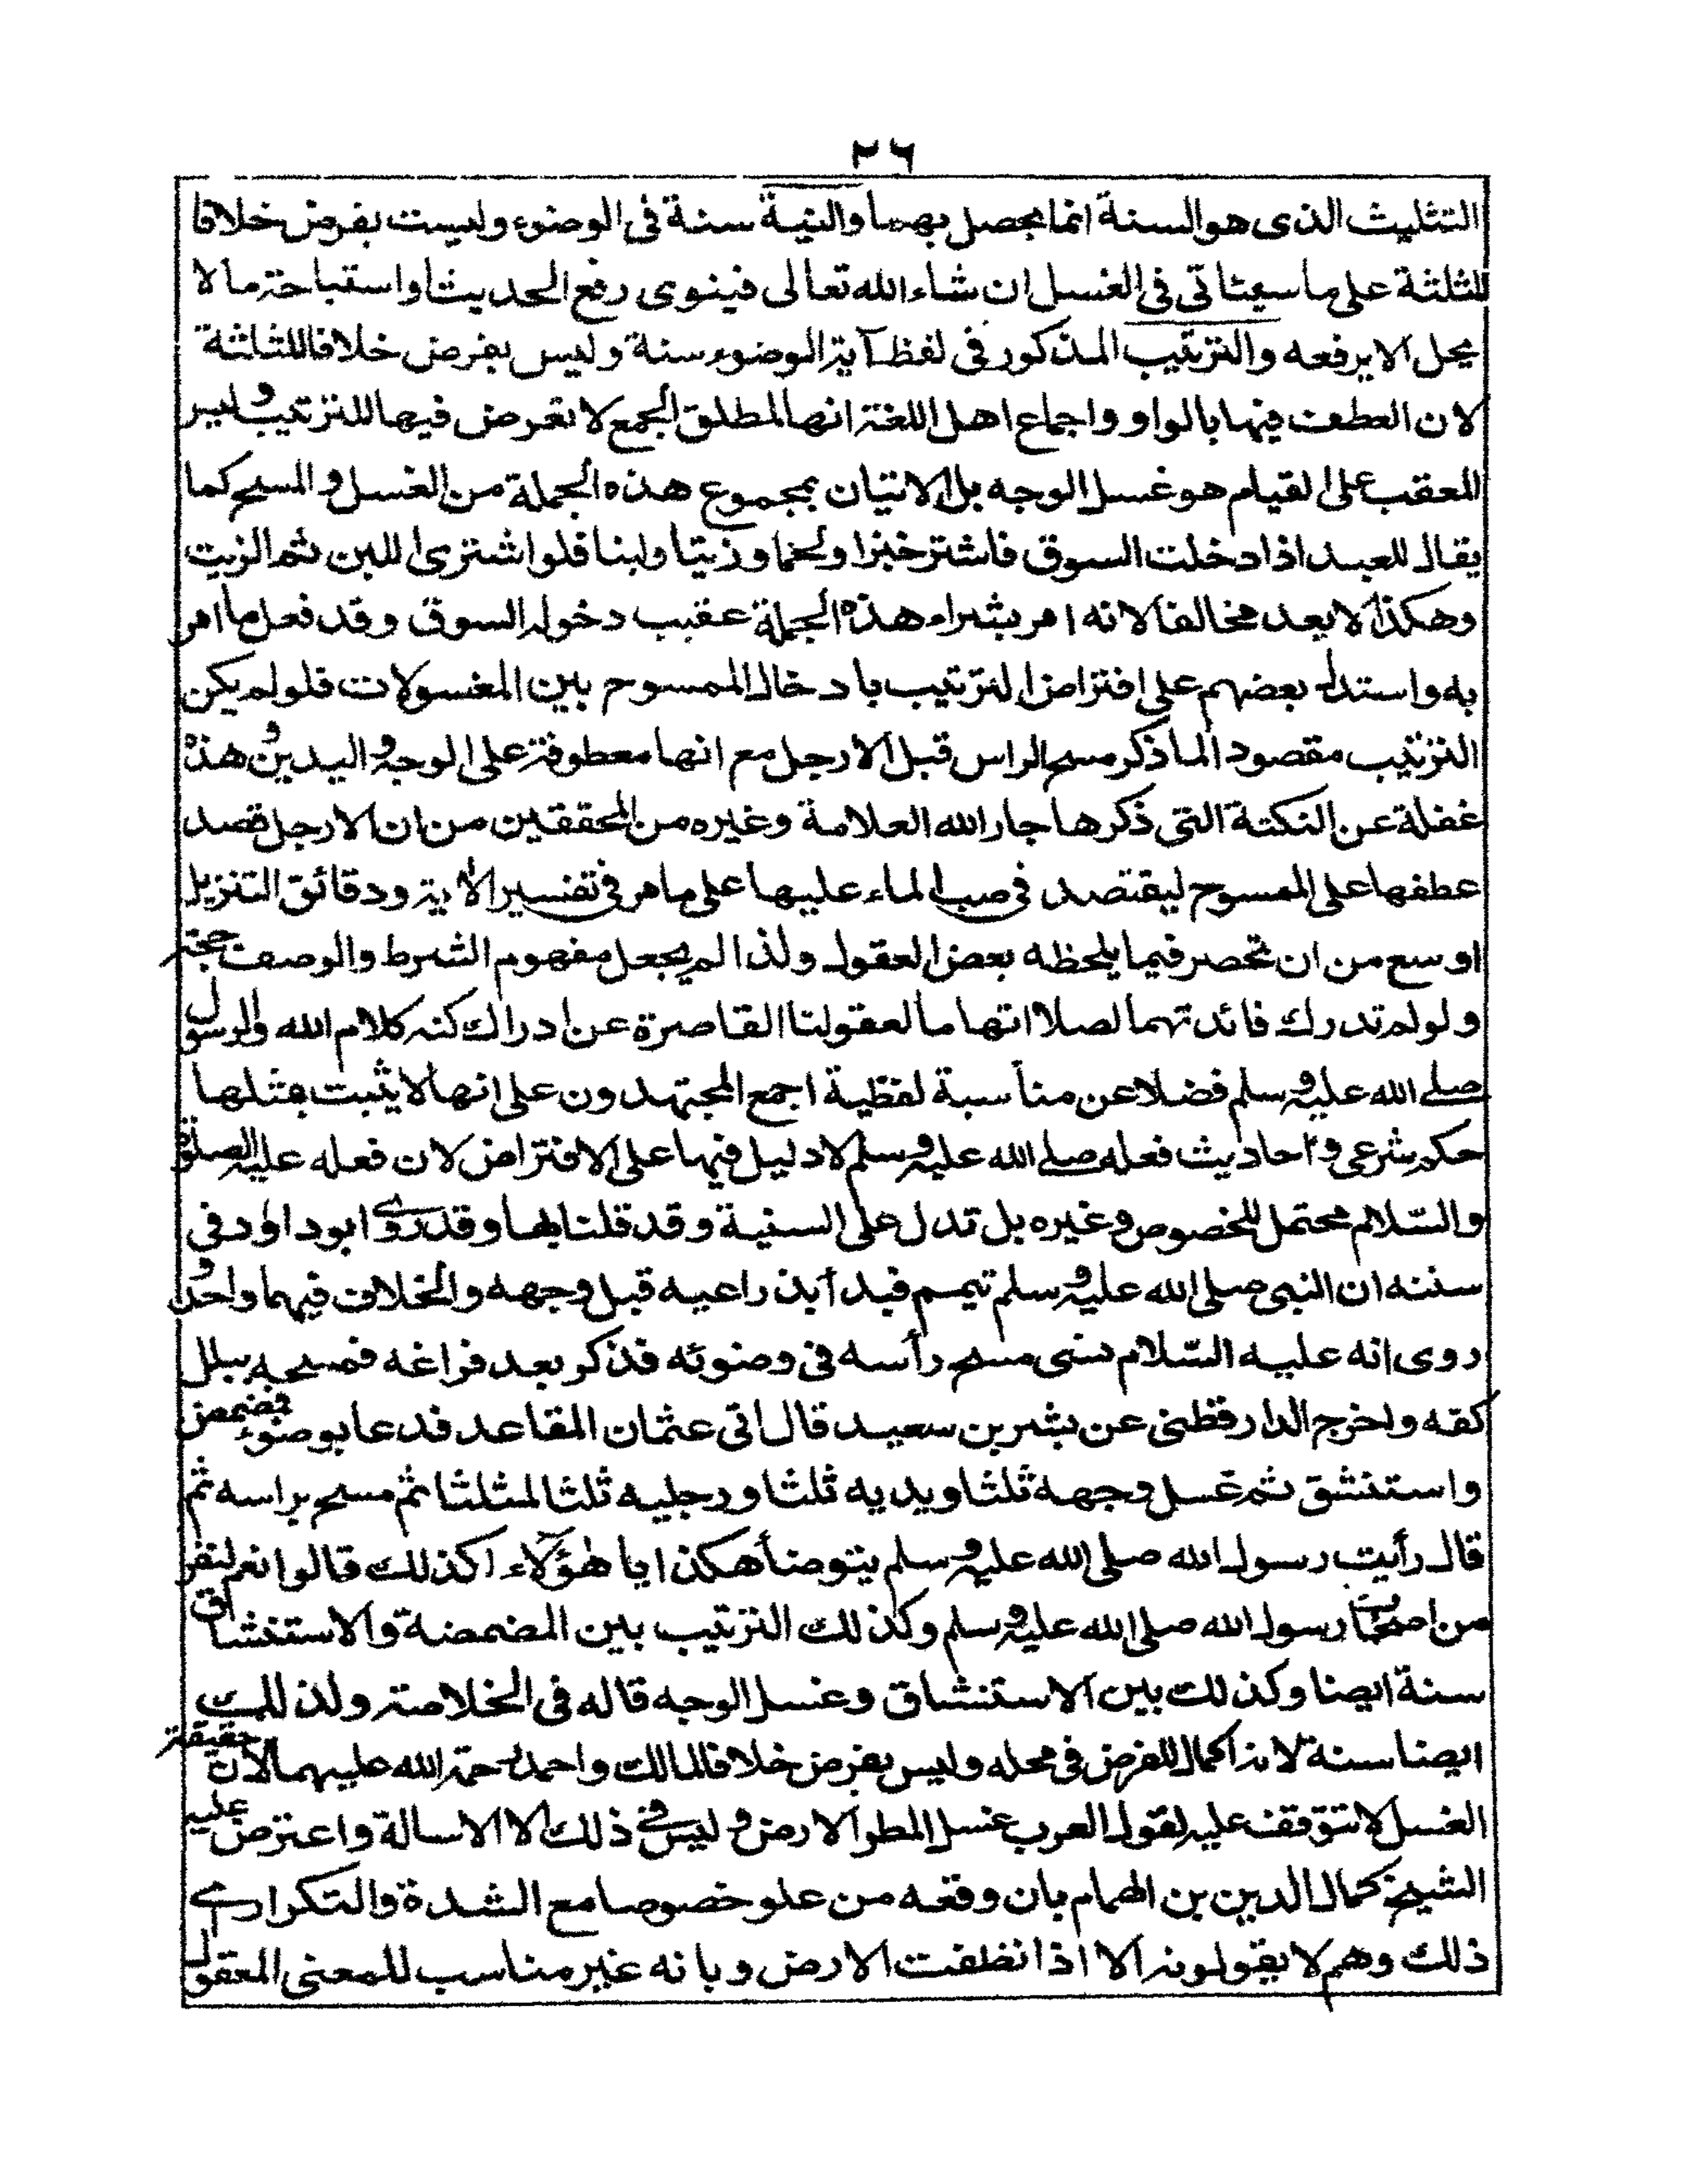 ٢٦
التثليث الذى هو السنة انما يحصل بهما والنية سنة فى الوضوء وليست بفرض خلافا
للثلثة على ما سيئاتى فى الغسل ان شاء الله تعالى فينوى رفع الحديث واستباحة ما لا
يحل الا برفعه والترتيب المذكور فى لفظ آية الوضوء سنة وليس بفرض خلافا للثلثة
لان العطف فيها بالواو واجماع اهل اللغة انها لمطلق الجمع لا تعرض فيها للترتيب وليس
المعقب على القيام هو غسل الوجه بل الاتيان بمجموع هذه الجملة من الغسل والمسح كما
يقال للعبد اذا دخلت السوق فاشتر خبزا ولحما وزيتا ولبنا فلو اشترى اللبن ثم الزيت
وهكذا لا يعد مخالفا لانه امر بشراء هذه الجملة عقيب دخول السوق وقد فعل ما امر
به واستدل بعضهم على افتراض الترتيب بادخال الممسوح بين المغسولات فلو لم يكن
الترتيب مقصودا لما ذكر مسح الراس قبل الارجل مع انها معطوفة على الوجه واليدين وهذه
غفلة عن النكتة التى ذكرها جار الله العلامة وغيره من المحققين من ان الارجل قصد
عطفها على الممسوح ليقتصد فى صب الماء عليها على ما مر فى تفسير الاية ودقائق التنزيل
اوسع من ان تحصر فيما يلحظه بعض العقول ولذا لم يجعل مفهوم الشرط والوصف حجة
ولو لم تدرك فائدتهما لصلا اتهاما لعقولنا القاصرة عن ادراك كنه كلام الله والرسول
صلى الله عليه وسلم فضلا عن مناسبة لفظية اجمع المجتهدون على انها لا يثبت بمثلها
حكم شرعى واحاديث فعله صلى الله عليه وسلم لا دليل فيها على الافتراض لان فعله عليه الصلوة
والسّلام محتمل للخصوص وغيره بل تدل على السنية وقد قلنا بها وقد روى ابو داود فى
سننه ان النبى صلى الله عليه وسلم تيمم فبدأ بذراعيه قبل وجهه والخلاف فيهما واحد و
روى انه عليه السّلام نسى مسح رأسه فى وضوئه فذكر بعد فراغه فمسحه ببلل
كفه واخرج الدارقطنى عن بشر بن سعيد قال اتى عثمان المقاعد فدعا بوضوء فمضمض
واستنشق ثم غسل وجهه ثلثا ويديه ثلثا ورجليه ثلثا لمثلثا ثم مسح براسه ثم
قال رأيت رسول الله صلى الله عليه وسلم يتوضأ هكذا يا هؤلاء اكذلك قالوا نعم لنفر
من اصحاب رسول الله صلى الله عليه وسلم وكذلك الترتيب بين المضمضة والاستنشاق
سنة ايضا وكذلك بين الاستنشاق وغسل الوجه قاله فى الخلاصة ولدلك
ايضا سنة لانه اكمال للفرض فى محله وليس بفرض خلافا لمالك واحمد رحمة الله عليهما لان حقيقة
الغسل لا تتوقف عليه لقول العرب غسل المطر الارض وليس فى ذلك الا الاسالة واعترض عليه
الشيخ كمال الدين بن الهمام بان وقعه من علو خصوصا مع الشدة والتكرار اى
ذلك وهم لا يقولونه الا اذا نظفت الارض وبانه غير مناسب للمعنى المعقول